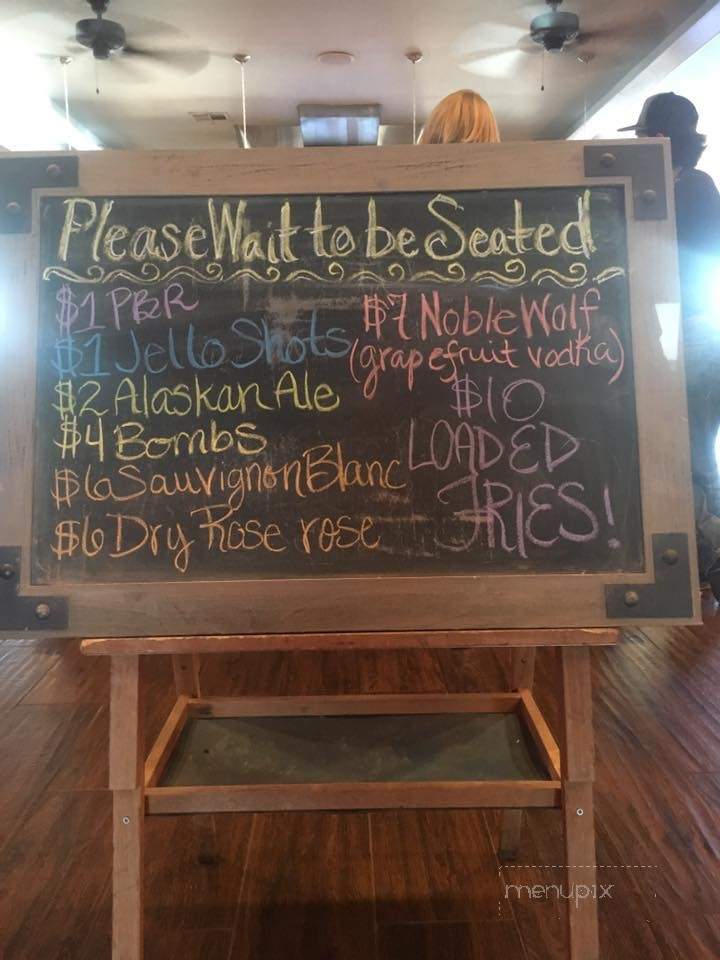 Please Wait to be Seated
$1 PBR
$1 Jello Shots
$2 Alaskan Ale
$4 Bombs
$6 Sauvignon Blanc
$6 Dry Rose rose
$7 Noble Wolf
(grapefruit vodka)
$10
LOADED
FRIES!
menupix